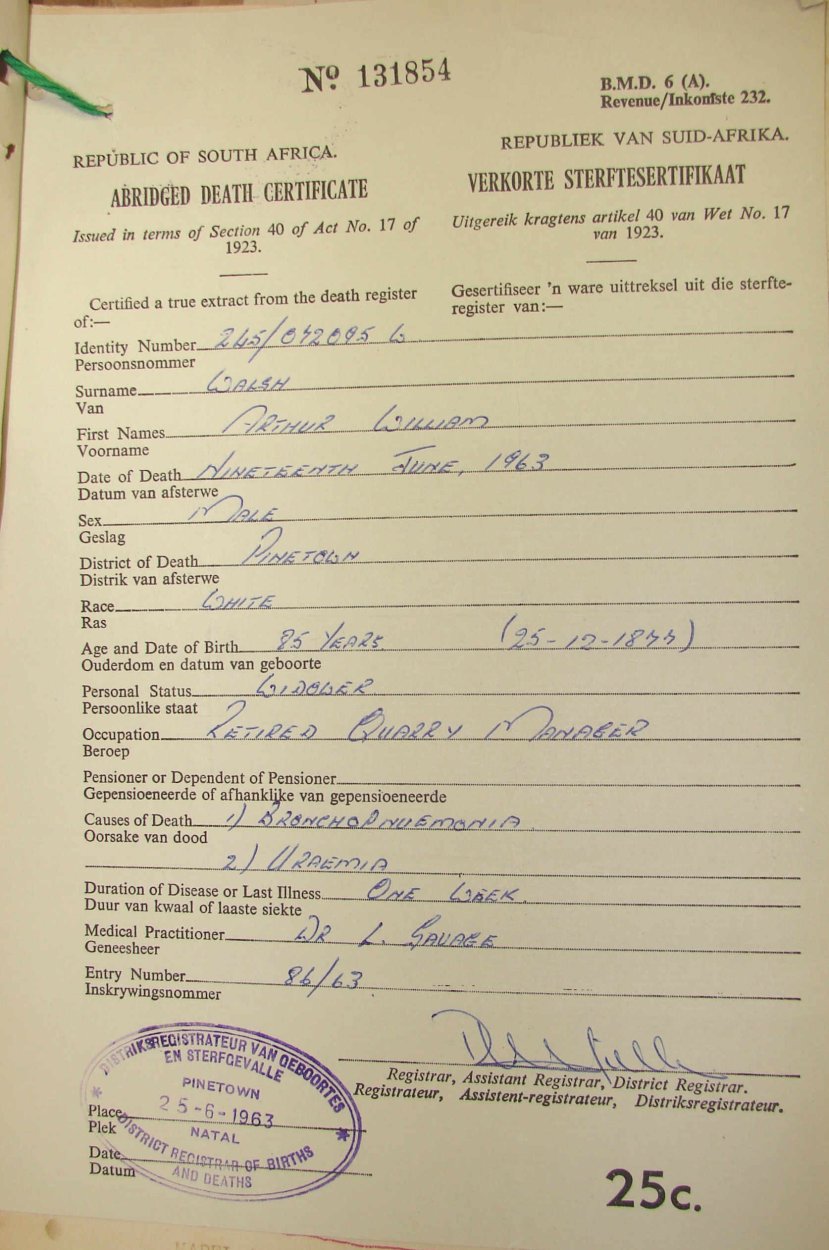 Nº 131854
B.M.D. 6 (A).
Revenue/Inkomste 232.
REPUBLIC OF SOUTH AFRICA.
REPUBLIEK VAN SUID-AFRIKA.
ABRIDGED DEATH CERTIFICATE
VERKORTE STERFTESERTIFIKAAT
Issued in terms of Section 40 of Act No. 17 of
1923.
Uitgereik kragtens artikel 40 van Wet No. 17
van 1923.
Certified a true extract from the death register
of:—
Gesertifiseer 'n ware uittreksel uit die sterfte-
register van:—
Identity Number 245/072095 W
Persoonsnommer
Surname WALSH
Van
First Names ARTHUR WILLIAM
Voorname
Date of Death NINETEENTH JUNE, 1963
Datum van afsterwe
Sex MALE
Geslag
District of Death PINETOWN
Distrik van afsterwe
Race WHITE
Ras
Age and Date of Birth 85 YEARS (25-12-1877)
Ouderdom en datum van geboorte
Personal Status WIDOWER
Persoonlike staat
Occupation RETIRED QUARRY MANAGER
Beroep
Pensioner or Dependent of Pensioner
Gepensioeneerde of afhanklike van gepensioeneerde
Causes of Death 1) BRONCHOPNUEMONIA
Oorsake van dood
2) URAEMIA
Duration of Disease or Last Illness ONE WEEK.
Duur van kwaal of laaste siekte
Medical Practitioner DR L. SAVAGE
Geneesheer
Entry Number 86/63
Inskrywingsnommer
Registrar, Assistant Registrar, District Registrar.
Registrateur, Assistent-registrateur, Distriksregistrateur.
DISTRIKSREGISTRATEUR VAN GEBOORTES
EN STERFGEVALLE
PINETOWN
25-6-1963
NATAL
DISTRICT REGISTRAR OF BIRTHS
AND DEATHS
Place
Plek
Date
Datum
25c.